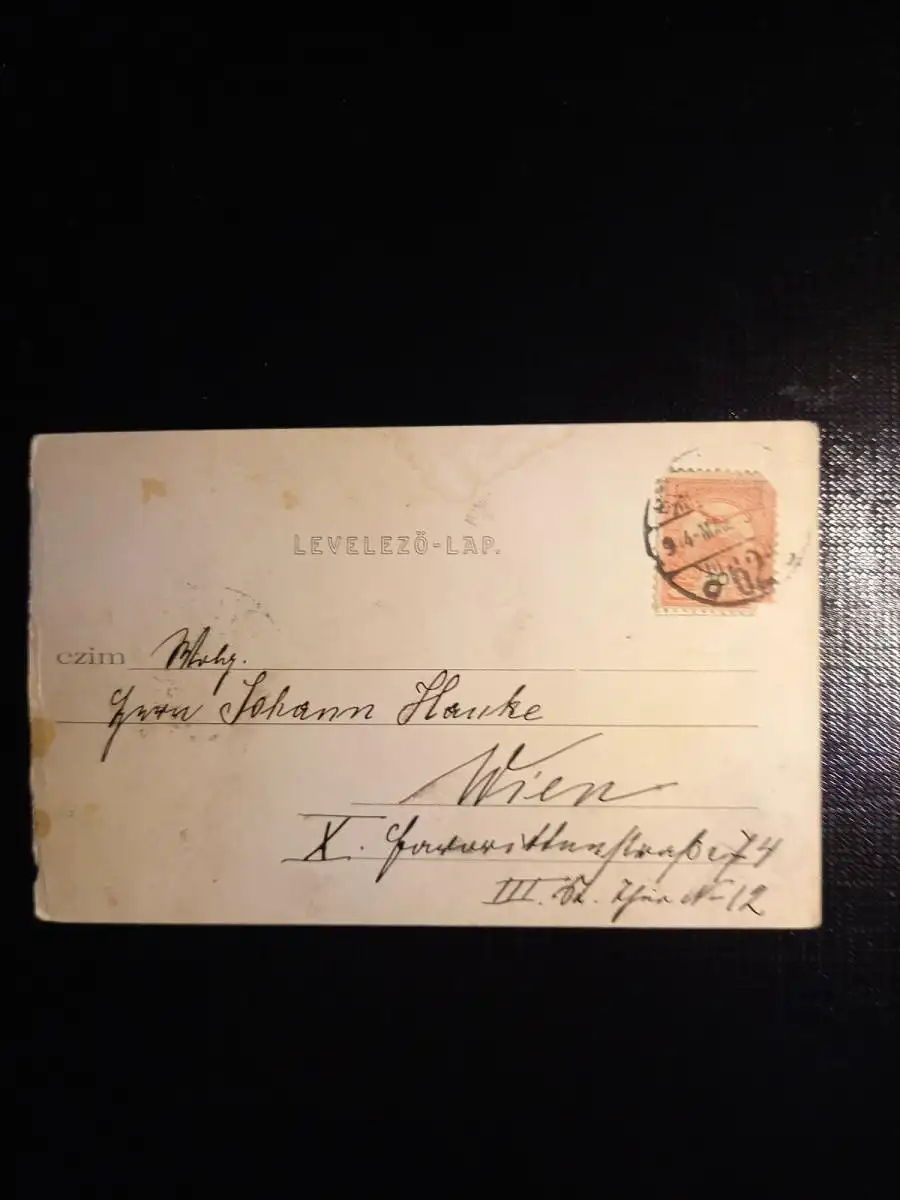 LEVELEZŐ-LAP.
904 MAR
czim Wolg.
Herrn Johann Hanke
Wien
X. Favorittenstraße 74
III. St. Thür № 12